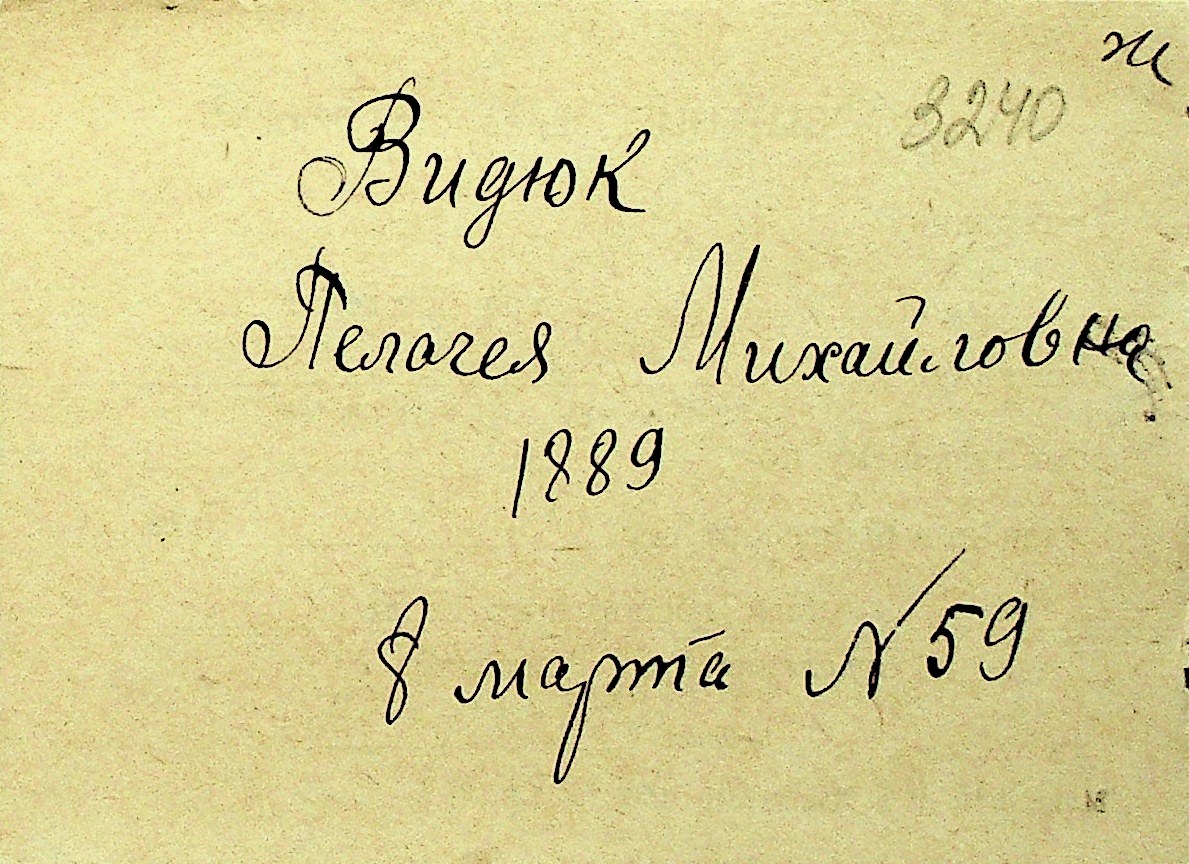 ж
3240
Видюк
Пелагея Михайловна
1889
8 марта № 59